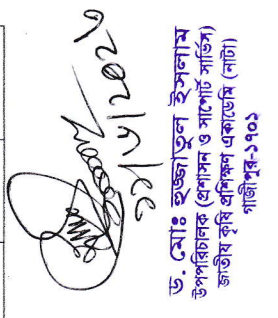 ড. মোঃ হুজ্জাতুল ইসলাম
উপপরিচালক (প্রশাসন ও সাপোর্ট সার্ভিস)
জাতীয় কৃষি প্রশিক্ষণ একাডেমি (নাটা)
গাজীপুর-১৭০১